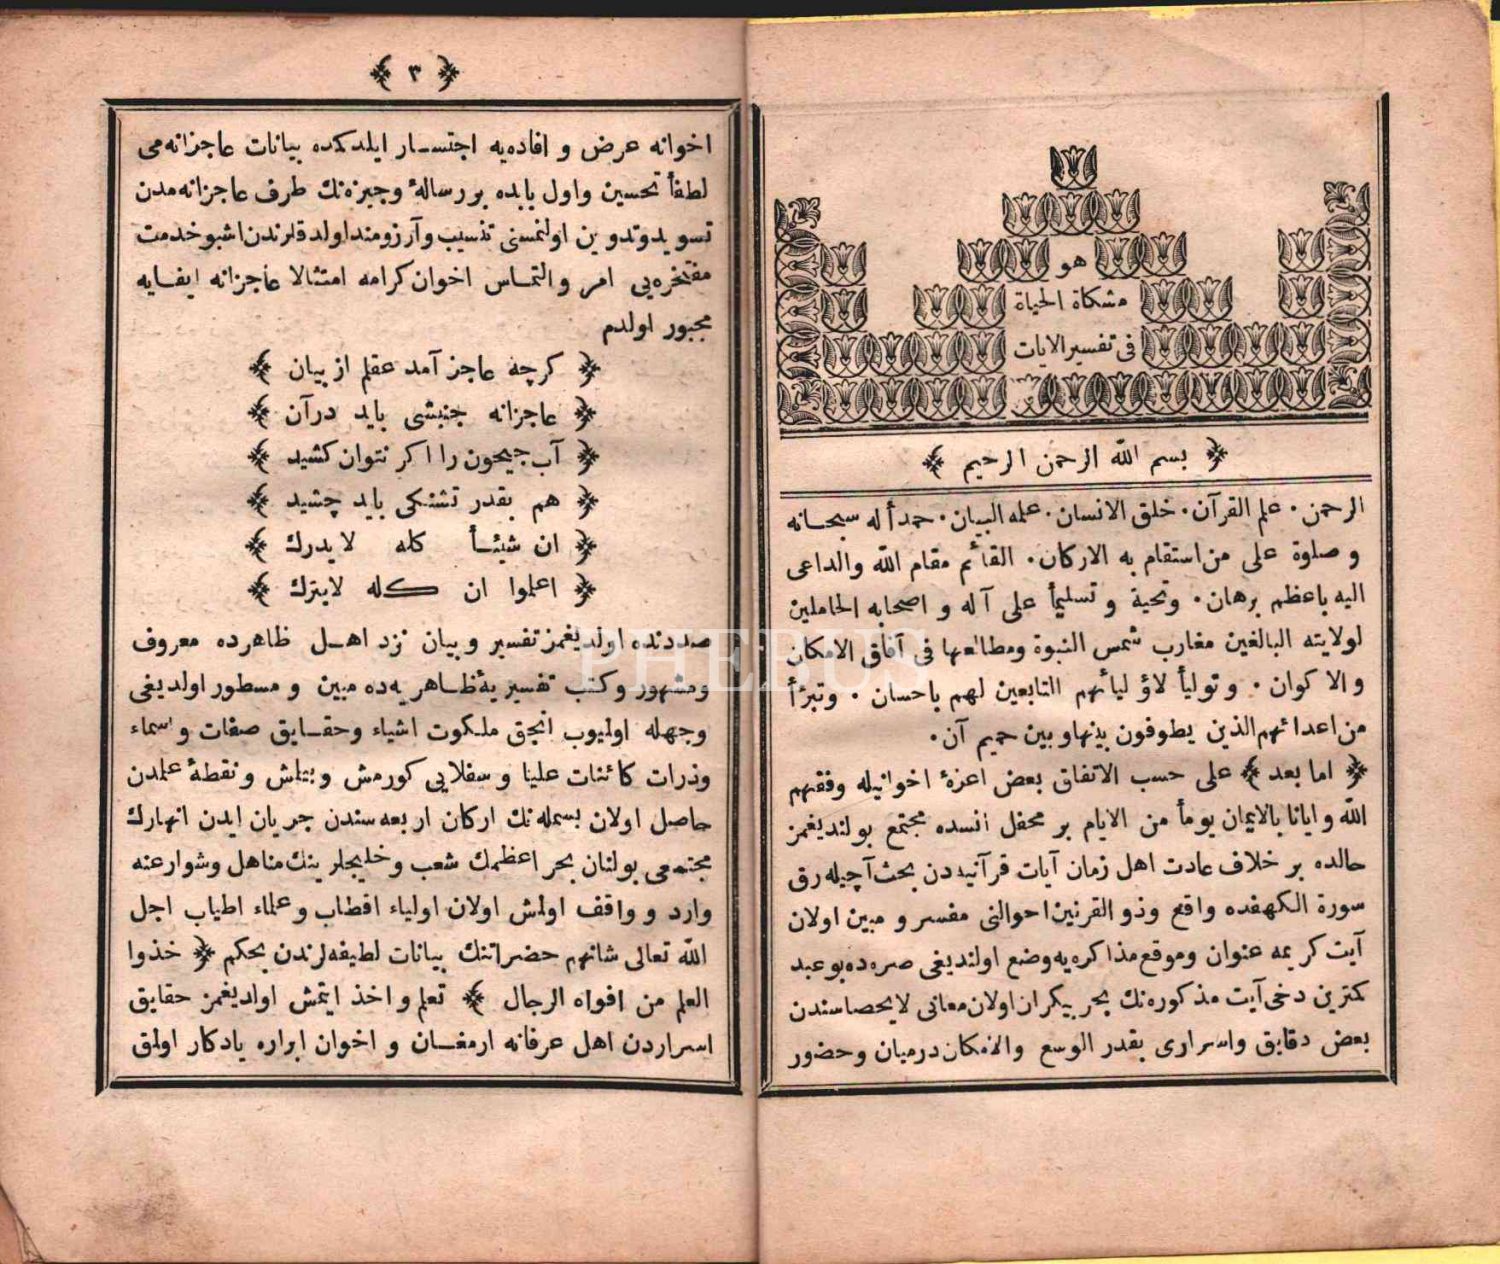 هو
مشكاة الحياة
فى تفسير الايات
﴿ بسم الله الرحمن الرحيم ﴾
الرحمن · علم القرآن · خلق الانسان · علمه البيان · حمداً له سبحانه
و صلوة على من استقام به الاركان · القائم مقام الله والداعى
اليه باعظم برهان · وتحية و تسليماً على آله و اصحابه الحاملين
لولايته البالغين مغارب شمس النبوة ومطالعها فى آفاق الامكان
والاكوان · وتولياً لاؤليائهم التابعين لهم باحسان · وتبرّأ
من اعدائهم الذين يطوفون بينها وبين حميم آن ·
﴿ اما بعد ﴾ على حسب الاتفاق بعض اعزهٔ اخوانيله وفقهم
الله وايانا بالايمان يوماً من الايام بر محفل انسده مجتمع بولنديغمز
حالده بر خلاف عادت اهل زمان آيات قرآنيه دن بحث آچيله رق
سورة الكهفده واقع وذو القرنين احوالنى مفسر و مبين اولان
آيت كريمه عنوان وموقع مذاكره يه وضع اولنديغى صره ده بو عبد
كمترين دخى آيت مذكوره نك بحر بيكران اولان معانى لايحصاسندن
بعض دقايق واسرارى بقدر الوسع والامكان درميان وحضور
﴿ ٣ ﴾
اخوانه عرض و افاده يه اجتسار ايلدكده بيانات عاجزانه مى
لطفاً تحسين واول بابده بو رسالهٔ وجيزه نك طرف عاجزانه مدن
تسويد وتدوين اولنمسنى تنسيب وآرزومند اولدقلرندن اشبو خدمت
مفتخره يى امر والتماس اخوان كرامه امتثالا عاجزانه ايفايه
مجبور اولدم
﴿ كرچه عاجز آمد عقلم از بيان ﴾
﴿ عاجزانه جنبشى بايد درآن ﴾
﴿ آب جيحون را اكر نتوان كشيد ﴾
﴿ هم بقدر تشنكى بايد چشيد ﴾
﴿ ان شيئاً كله لايدرك ﴾
﴿ اعلموا ان كله لايترك ﴾
صددنده اولديغمز تفسير وبيان نزد اهل ظاهرده معروف
ومشهور وكتب تفسيريهٔ ظاهريه ده مبين و مسطور اولديغى
وجهله اوليوب انجق ملكوت اشياء وحقايق صفات و اسماء
وذرات كائنات عليا و سفلايى كورمش وبتلش ونقطهٔ علمدن
حاصل اولان بسمله نك اركان اربعه سندن جريان ايدن انهارك
مجتمعى بولنان بحر اعظمك شعب وخليجلرينك مناهل وشوارعنه
وارد و واقف اولمش اولان اولياء اقطاب وعلماء اطياب اجل
الله تعالى شانهم حضراتنك بيانات لطيفه لرندن بحكم ﴿ خذوا
العلم من افواه الرجال ﴾ تعلم واخذ ايتمش اولديغمز حقايق
اسراردن اهل عرفانه ارمغان و اخوان ابراره يادكار اولمق
PHEBUS